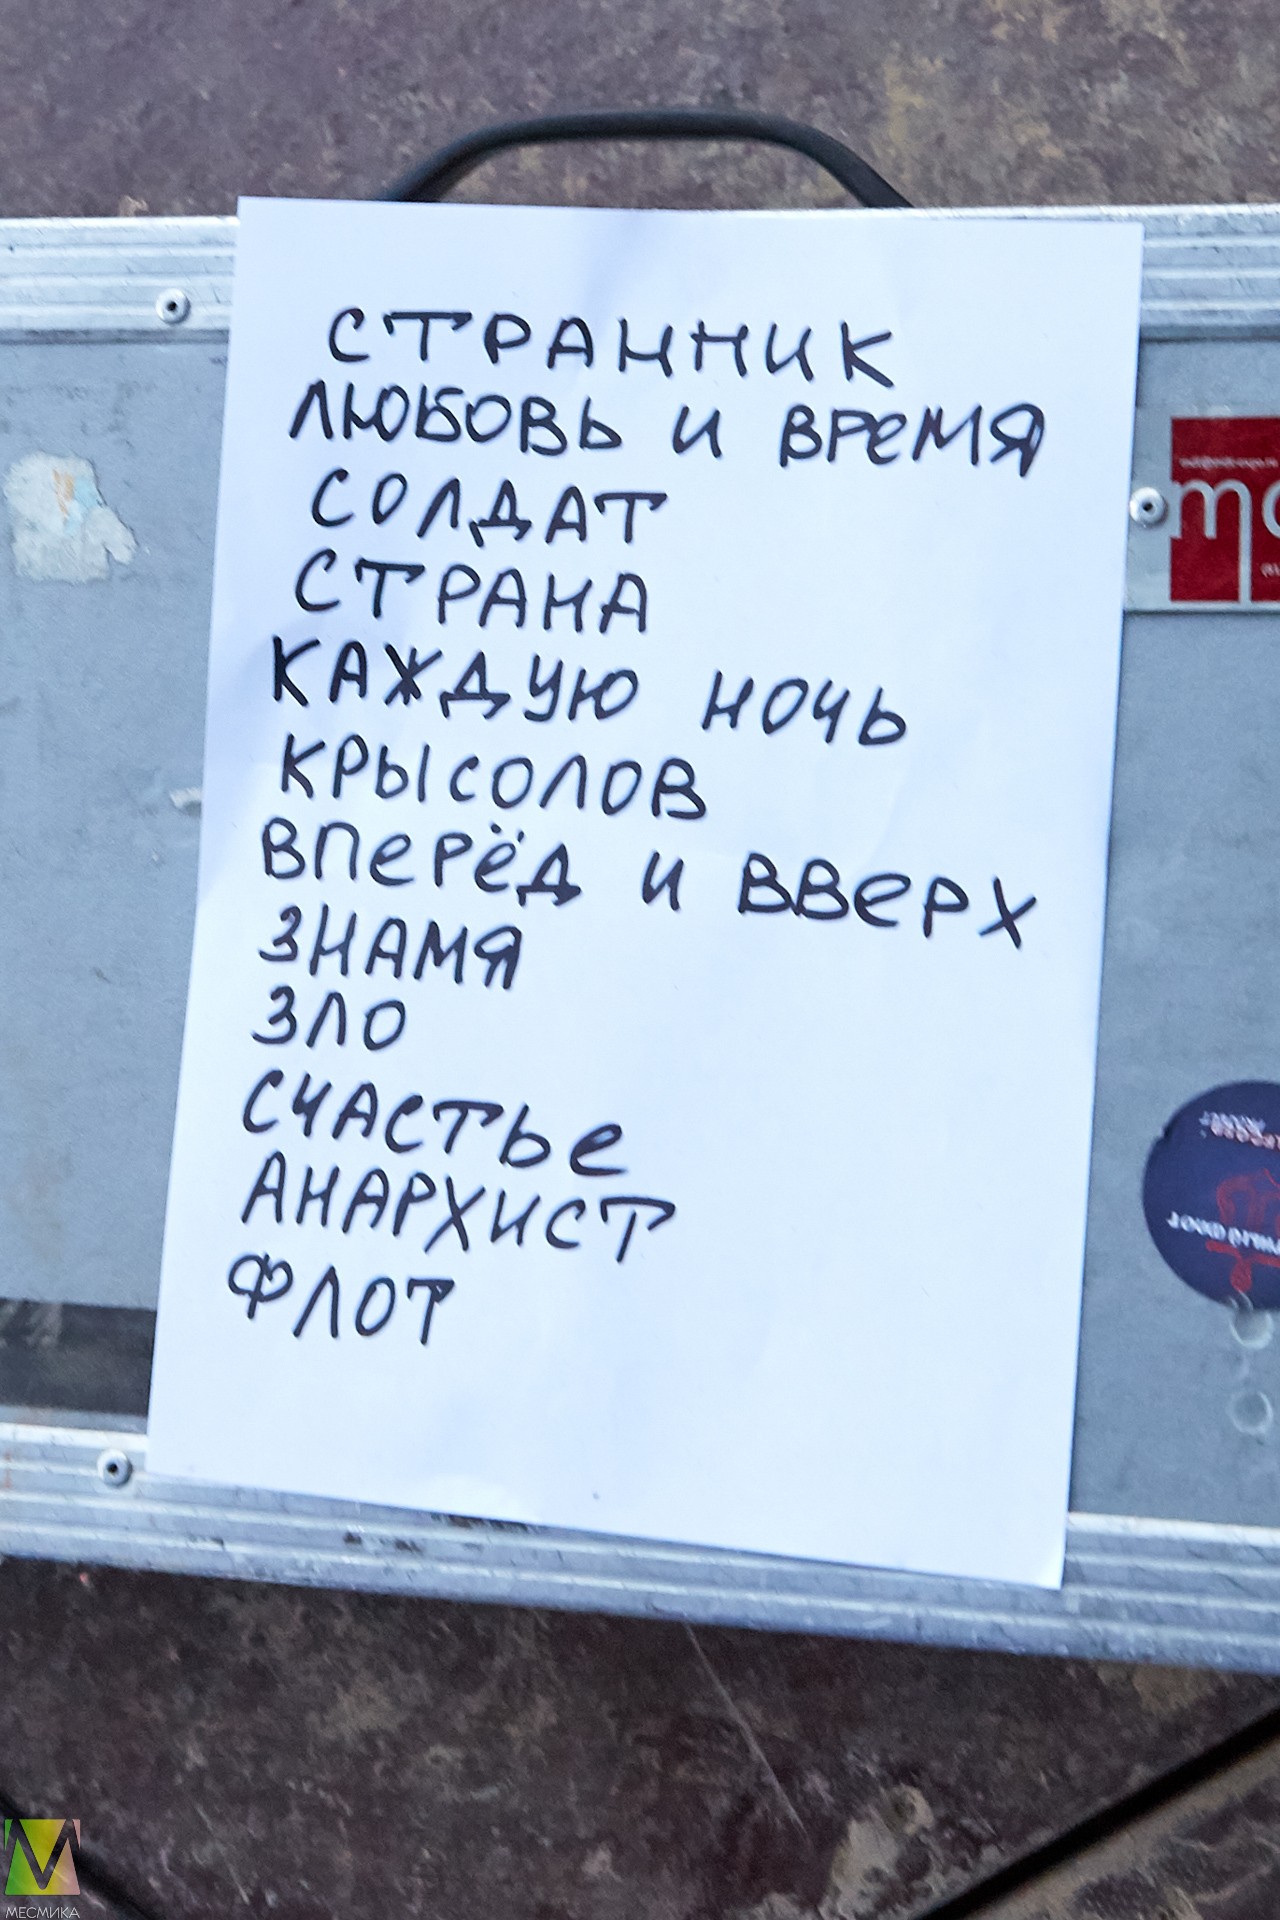 СТРАННИК
ЛЮБОВЬ И ВРЕМЯ
СОЛДАТ
СТРАНА
КАЖДУЮ НОЧЬ
КРЫСОЛОВ
ВПЕРЁД И ВВЕРХ
ЗНАМЯ
ЗЛО
СЧАСТЬЕ
АНАРХИСТ
ФЛОТ
МЕСМИКА